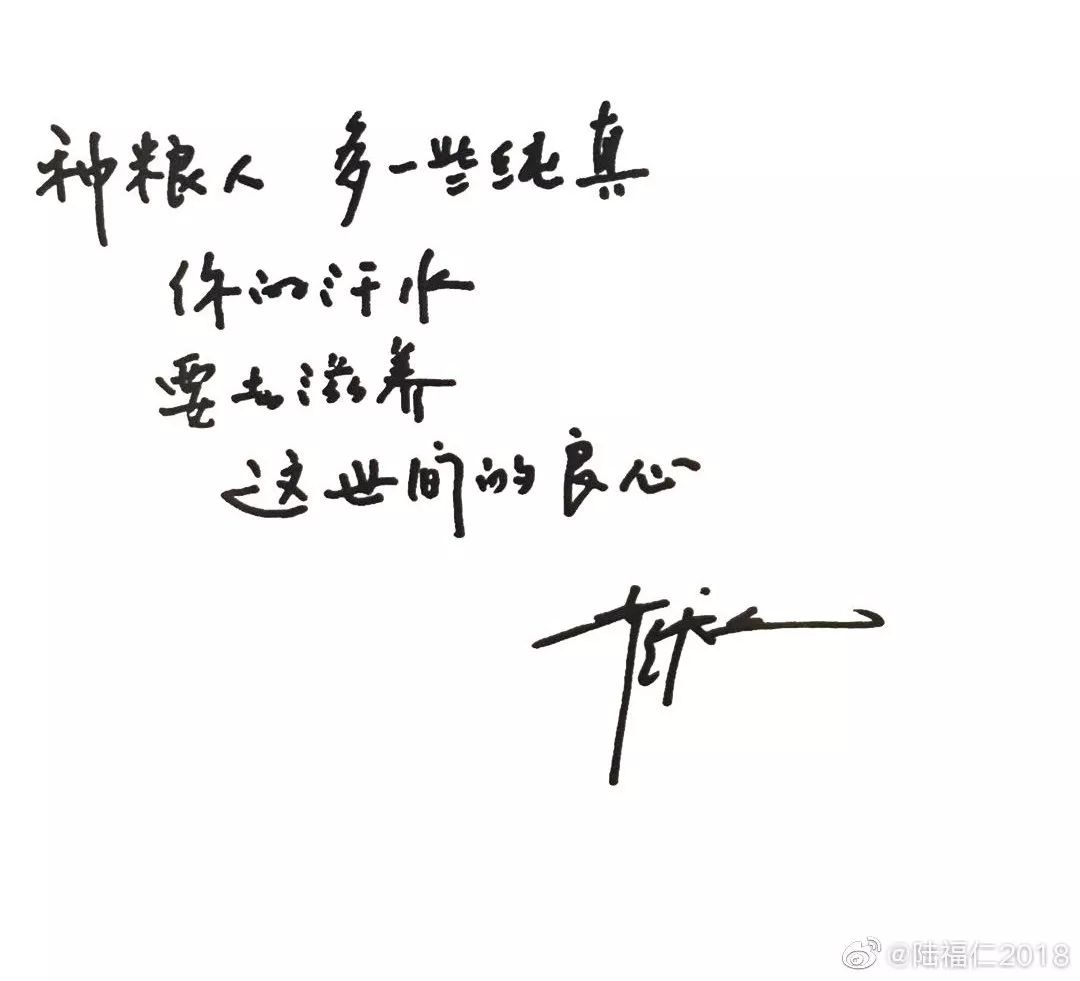 种粮人 多一些纯真
你的汗水
要去滋养
这世间的良心
@陆福仁2018